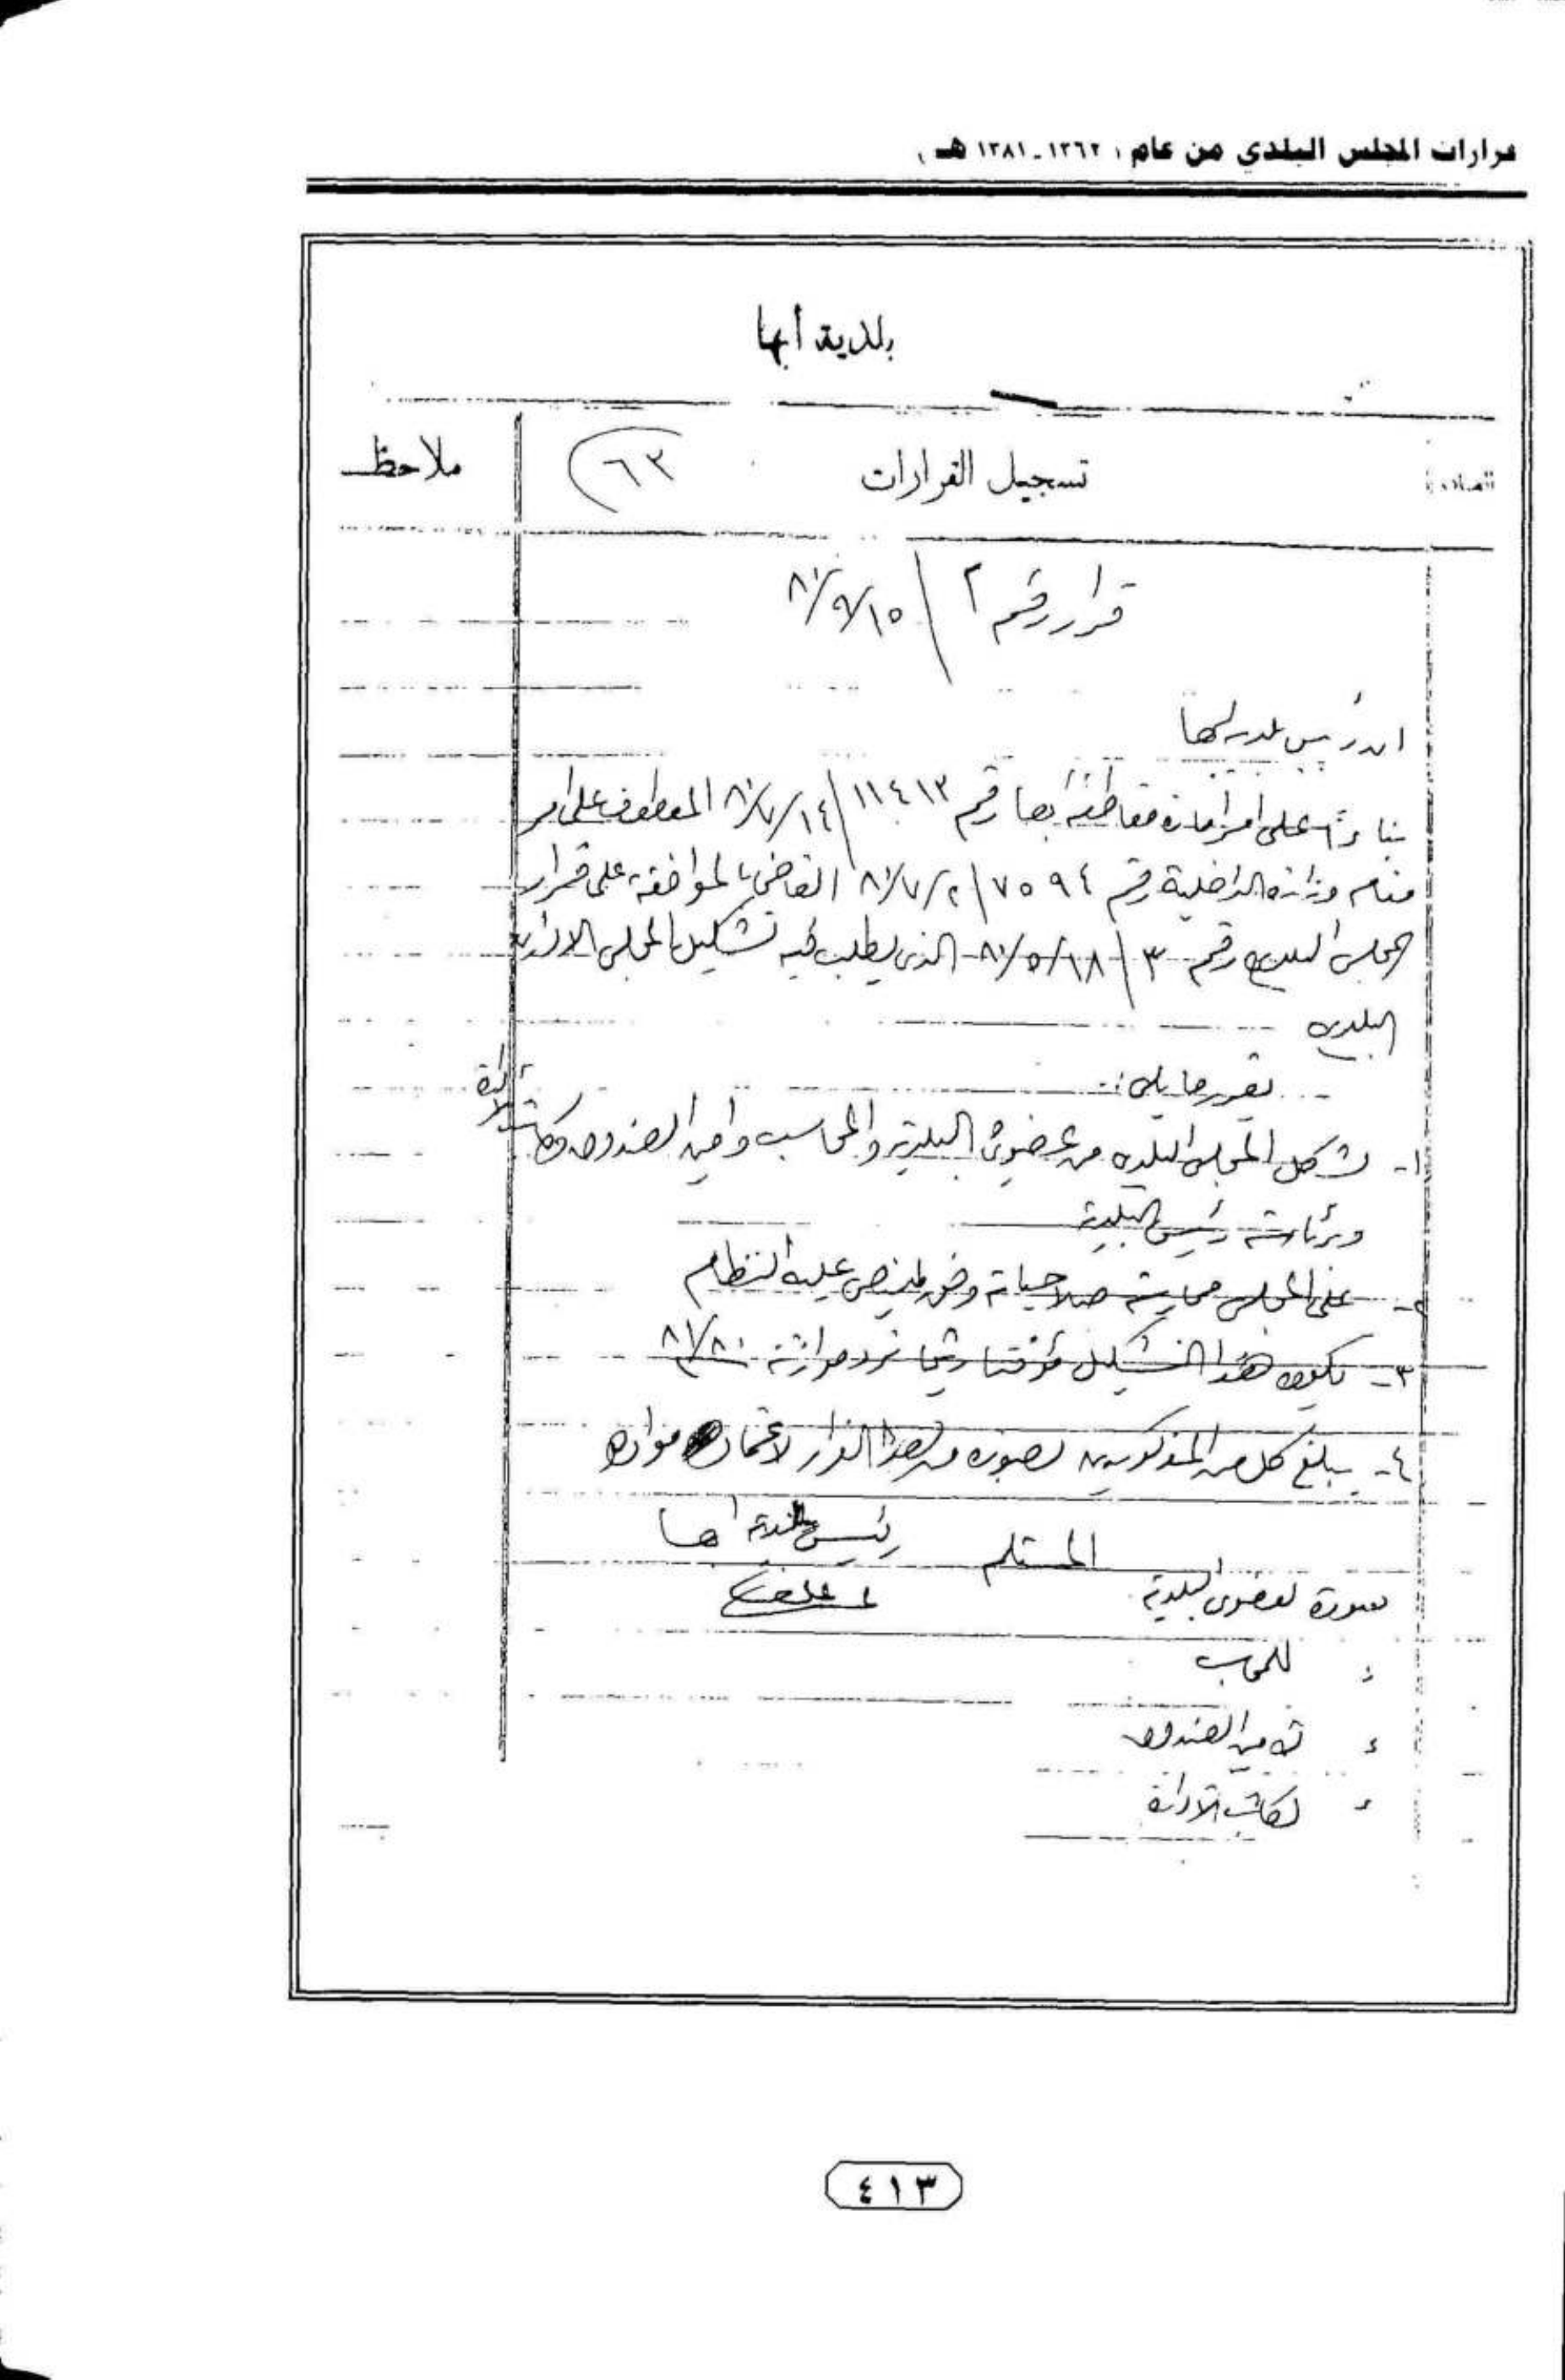 قرارات المجلس البلدي من عام ( ١٣٦٢ - ١٣٨١ هـ )
بلدية أبها
تسجيل القرارات ٦٣ ملاحظـ
قرار رقم ٢ / ١٥/٩/٨٠
ان رئيس بلدية ابها
بناءً على امر امارة مقاطعة ابها رقم ١١٤١٣ / ١٤/٧/٨٠ المعطوف على امر
مقام وزارة الداخلية رقم ٧٥٩٤ / ٢/٧/٨٠ القاضي بالموافقة على قرار
المجلس البلدي رقم ٣ / ١٨/٥/٨٠ الذي يطلب فيه تشكيل المجلس الاداري
البلدي
يقرر ما يلي :
١- يشكل المجلس البلدي من عضوي البلدية والمحاسب وامين الصندوق وكاتب الادارة
وبرئاسة رئيس البلدية
٢- على المجلس ممارسة صلاحياته وفق ما ينص عليه النظام
٣- يكون هذا التشكيل مؤقتا ريثما ترد موازنة ٨٠/٨١
٤- يبلغ كل من المذكورين بصورة من هذا القرار لاعتماده
المستلم رئيس بلدية ابها
صورة لعضوي البلدية
للمحاسب
لامين الصندوق
لكاتب الادارة
٤١٣